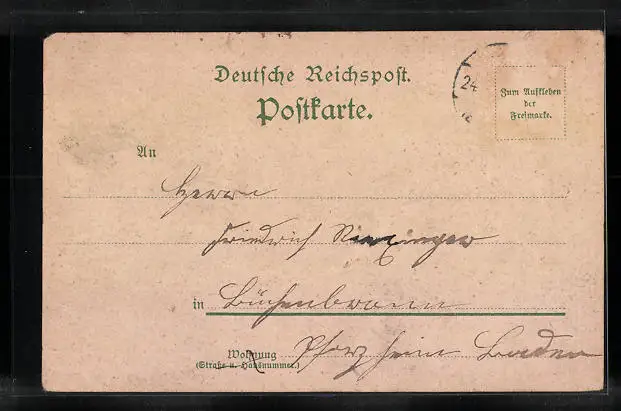 Deutsche Reichspost.
Postkarte.
24
Zum Aufkleben
der
Freimarke.
An
Herrn
Friedrich
in Büchenbronn
Wohnung Pforzheim Baden
(Straße u. Hausnummer.)